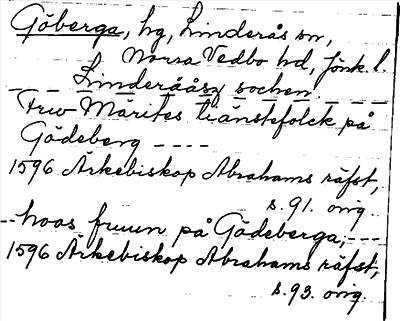 Göberga, hg, Linderås sn,
Norra Vedbo hd, Jönk. l.
Linderååsz sochen.
Frw Märites tiänstefolck på
Gödeberg ----
1596 Ärkebiskop Abrahams räfst,
s. 91. orig.
-- hoos fruun på Gödeberga, ---
1596 Ärkebiskop Abrahams räfst,
s. 93. orig.